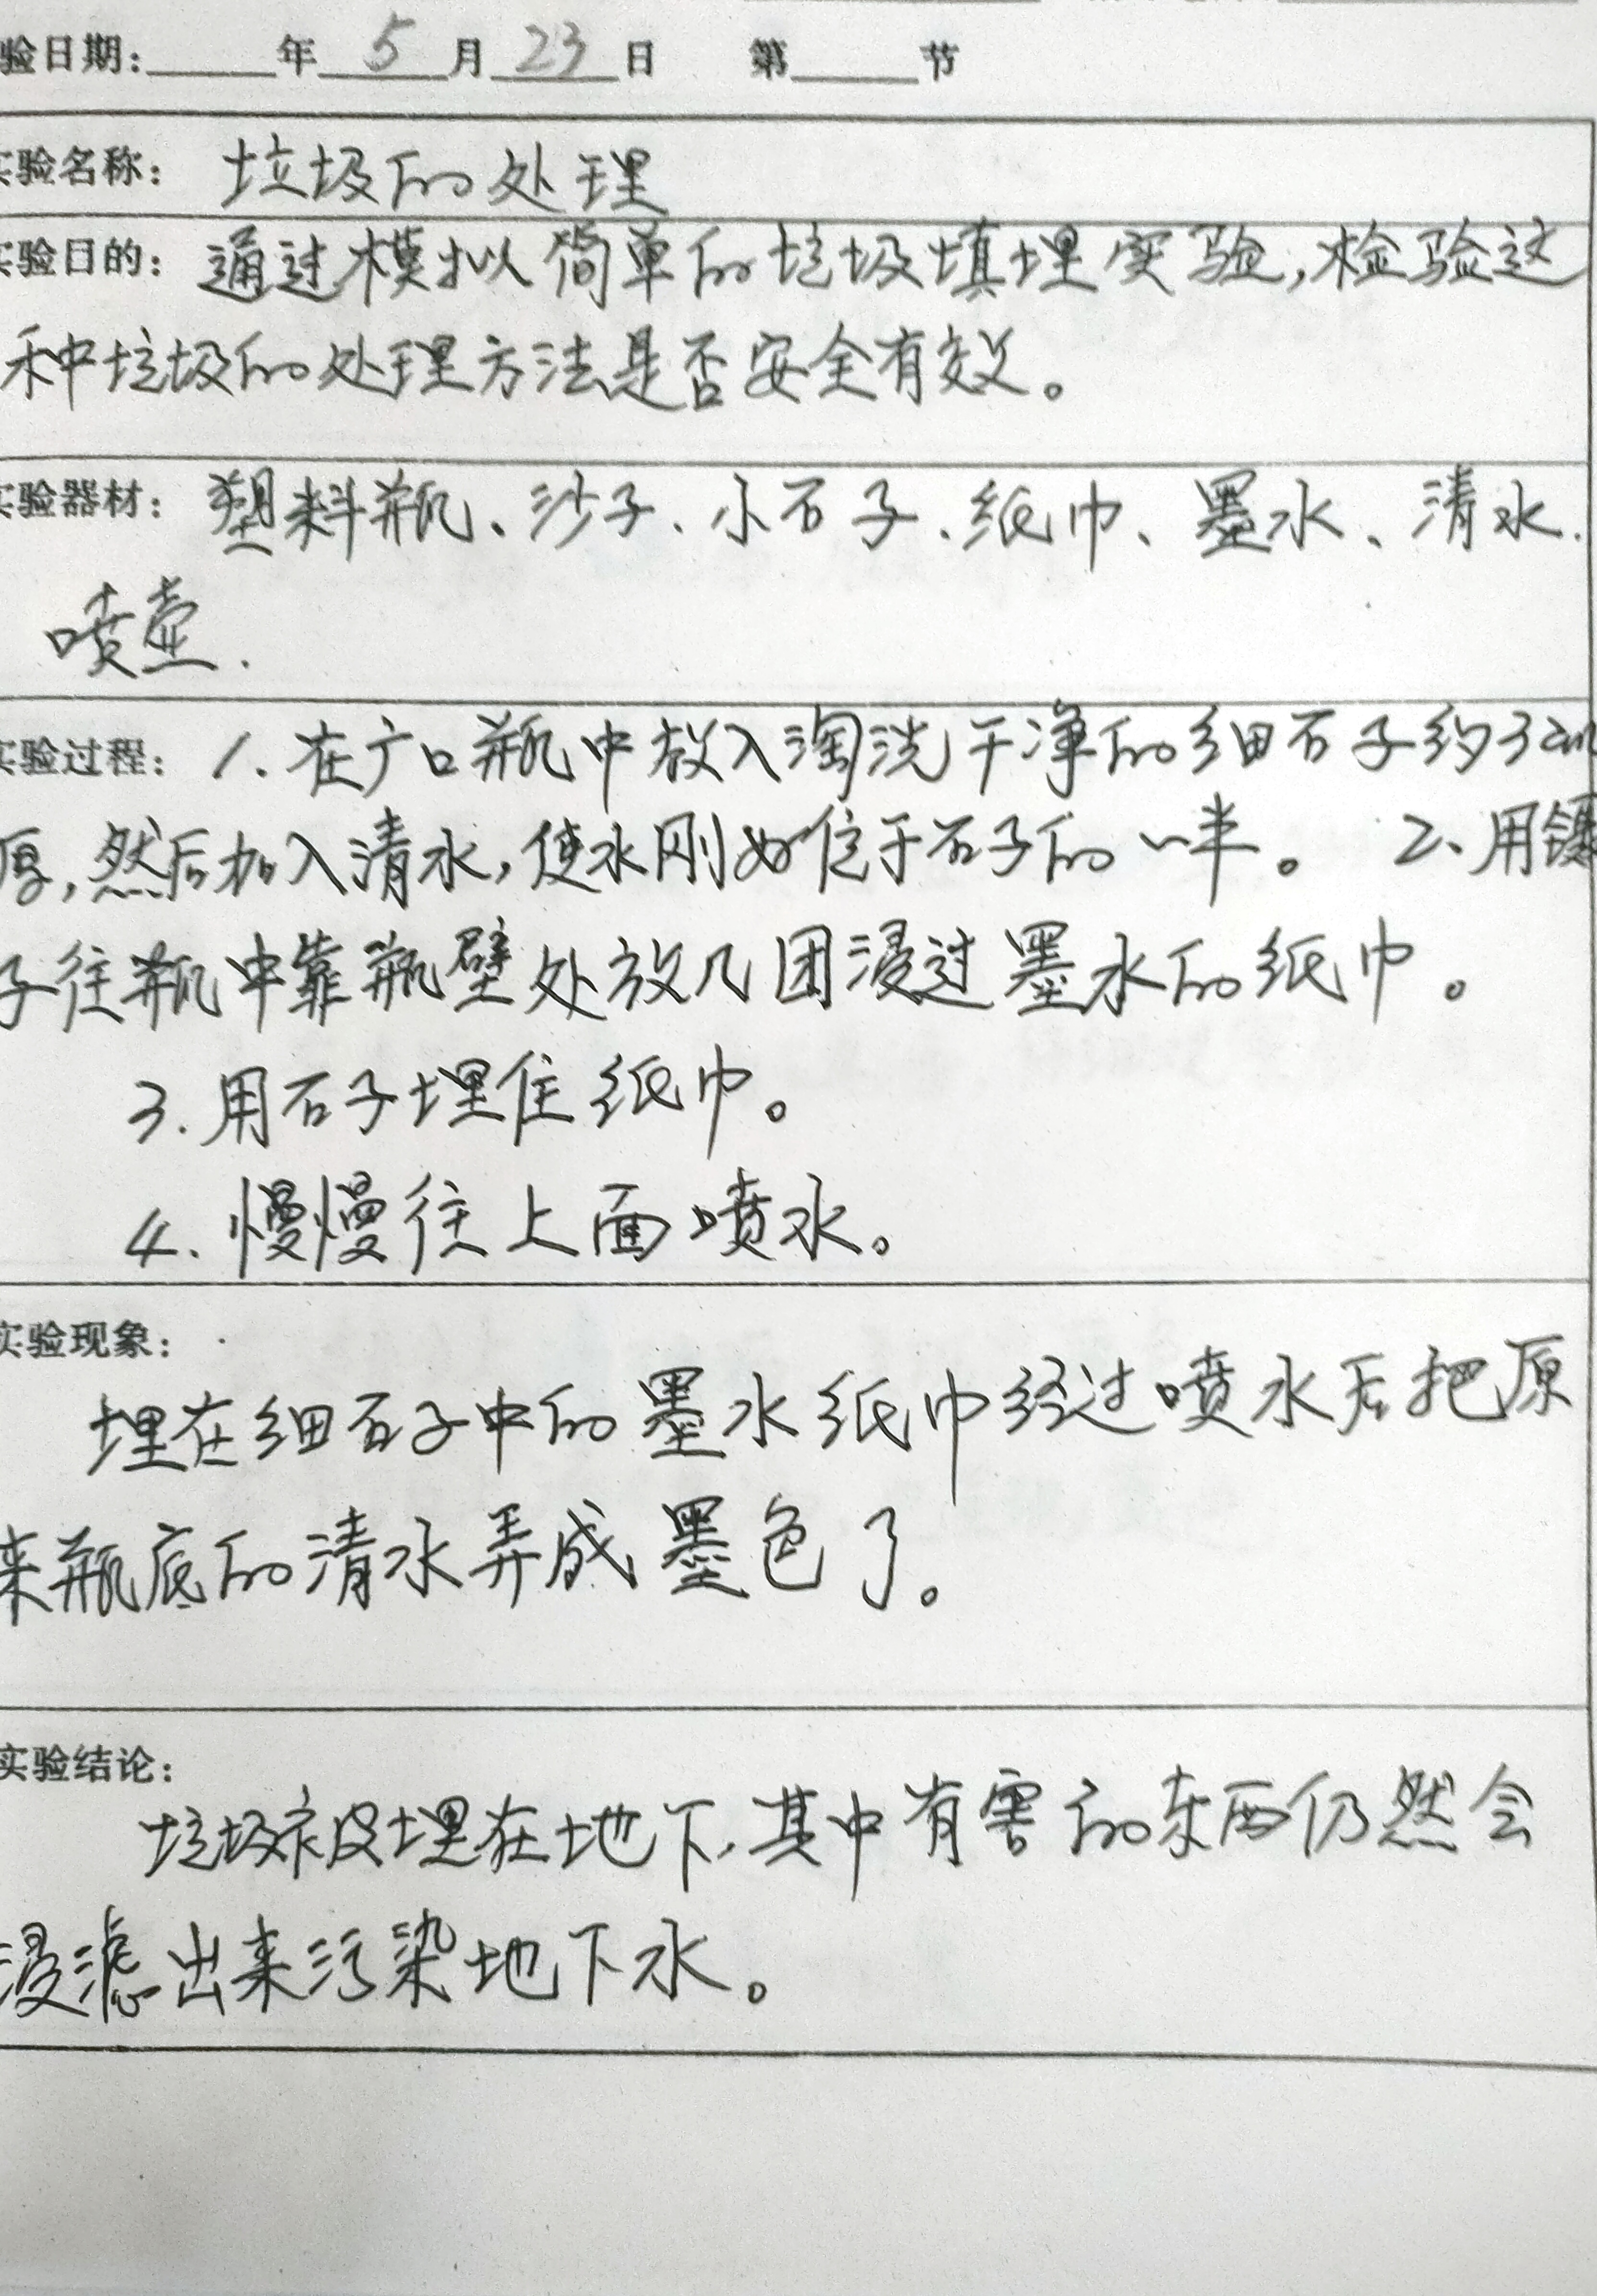 验日期：____年 5 月 23 日 第____节
实验名称： 垃圾的处理
实验目的： 通过模拟简单的垃圾填埋实验,检验这
种垃圾的处理方法是否安全有效。
实验器材： 塑料瓶、沙子、小石子、纸巾、墨水、清水、
喷壶.
实验过程： 1.在广口瓶中放入淘洗干净的细石子约3cm
厚,然后加入清水,使水刚好位于石子的一半。 2、用镊
子往瓶中靠瓶壁处放几团浸过墨水的纸巾。
3.用石子埋住纸巾。
4.慢慢往上面喷水。
实验现象：
埋在细石子中的墨水纸巾经过喷水后把原
来瓶底的清水弄成墨色了。
实验结论：
垃圾被埋在地下,其中有害的东西仍然会
浸滤出来污染地下水。